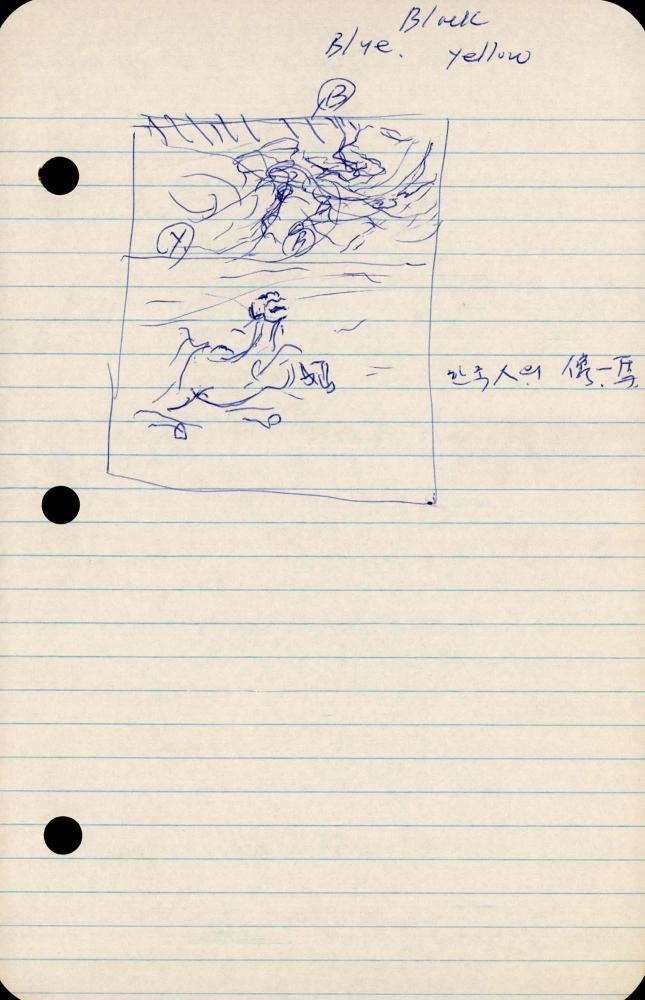 Black
Blue. yellow
B
Y
B
한국人의 像.